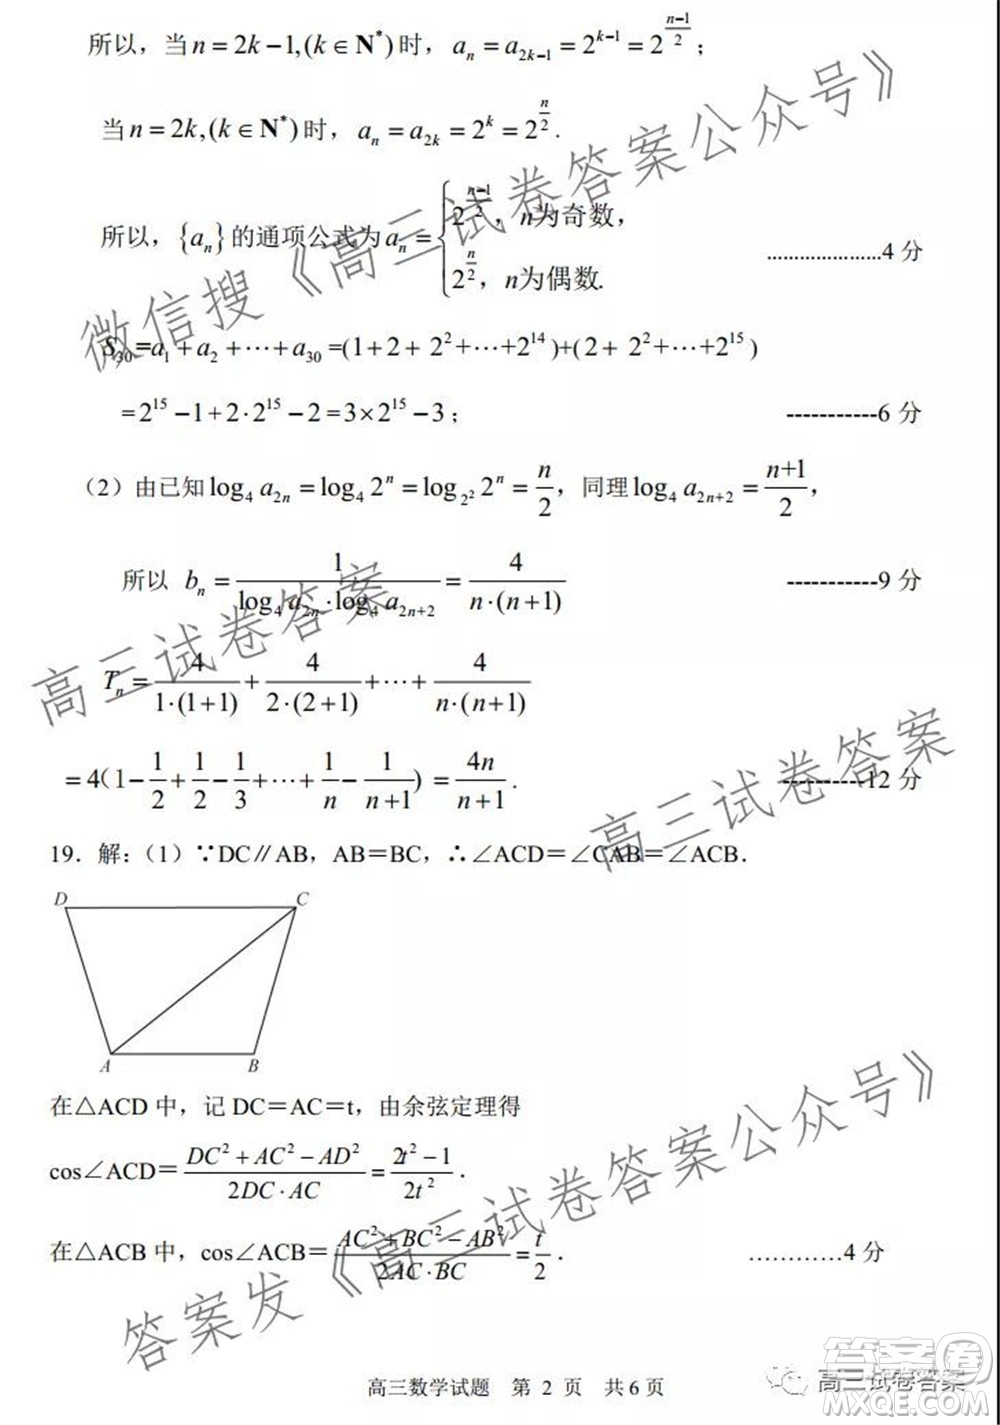 所以，当 n = 2k − 1, (k ∈ N*) 时，aₙ = a₂ₖ₋₁ = 2^(k−1) = 2^((n−1)/2)；
当 n = 2k, (k ∈ N*) 时，aₙ = a₂ₖ = 2^k = 2^(n/2).
所以，{aₙ} 的通项公式为 aₙ = { 2^((n−1)/2)，n为奇数， ......................4 分
2^(n/2)，n为偶数.
S₃₀ = a₁ + a₂ + ⋯ + a₃₀ = (1 + 2 + 2² + ⋯ + 2¹⁴) + (2 + 2² + ⋯ + 2¹⁵)
= 2¹⁵ − 1 + 2·2¹⁵ − 2 = 3×2¹⁵ − 3； -----------6 分
（2）由已知 log₄ a₂ₙ = log₄ 2ⁿ = log_(2²) 2ⁿ = n/2，同理 log₄ a₂ₙ₊₂ = (n+1)/2，
所以 bₙ = 1/(log₄ a₂ₙ · log₄ a₂ₙ₊₂) = 4/(n·(n+1)) -----------9 分
Tₙ = 4/(1·(1+1)) + 4/(2·(2+1)) + ⋯ + 4/(n·(n+1))
= 4(1 − 1/2 + 1/2 − 1/3 + ⋯ + 1/n − 1/(n+1)) = 4n/(n+1). ----------12 分
19．解：（1）∵DC∥AB，AB＝BC，∴∠ACD＝∠CAB＝∠ACB．
D C
A B
在△ACD 中，记 DC＝AC＝t，由余弦定理得
cos∠ACD＝(DC² + AC² − AD²)/(2DC·AC) = (2t² − 1)/(2t²)．
在△ACB 中，cos∠ACB＝(AC² + BC² − AB²)/(2AC·BC) = t/2． …………4 分
高三数学试题 第 2 页 共 6 页
微信搜《高三试卷答案公众号》
高三试卷答案
高三试卷答案
答案发《高三试卷答案公众号》
高三试卷答案
答案圈
MXQE.COM